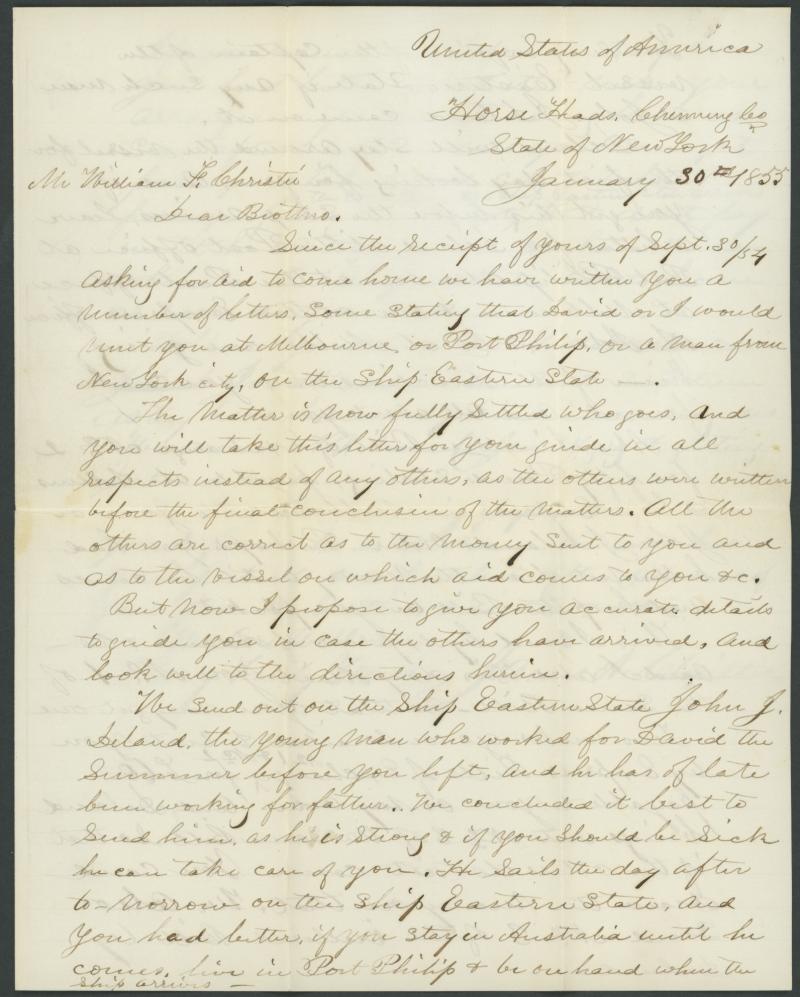 United States of America
Horse Heads, Chemung Co
State of New York
January 30th 1855
Mr William F. Christie
Dear Brother.
Since the receipt of yours of Sept. 30/54
asking for aid to come home we have written you a
number of letters, Some Stating that David or I would
meet you at Melbourne or Port Philip, or a man from
New York city, on the Ship Eastern State —.
The Matter is now fully Settled who goes, and
you will take this letter for your guide in all
respects instead of any others, as the others were written
before the final conclusion of the matters. All the
others are correct as to the money Sent to you and
as to the vessel on which aid comes to you &c.
But now I propose to give you accurate details
to guide you in case the others have arrived, and
look well to the directions herein.
We Send out on the Ship Eastern State John J.
Deland, the young man who worked for David the
Summer before you left, and he has of late
been working for father. We concluded it best to
Send him, as he is Strong & if you Should be Sick
he can take care of you. He Sails the day after
to-morrow on the Ship Eastern State, and
you had better, if you Stay in Australia until he
comes, live in Port Philip & be on hand when the
Ship arrives —